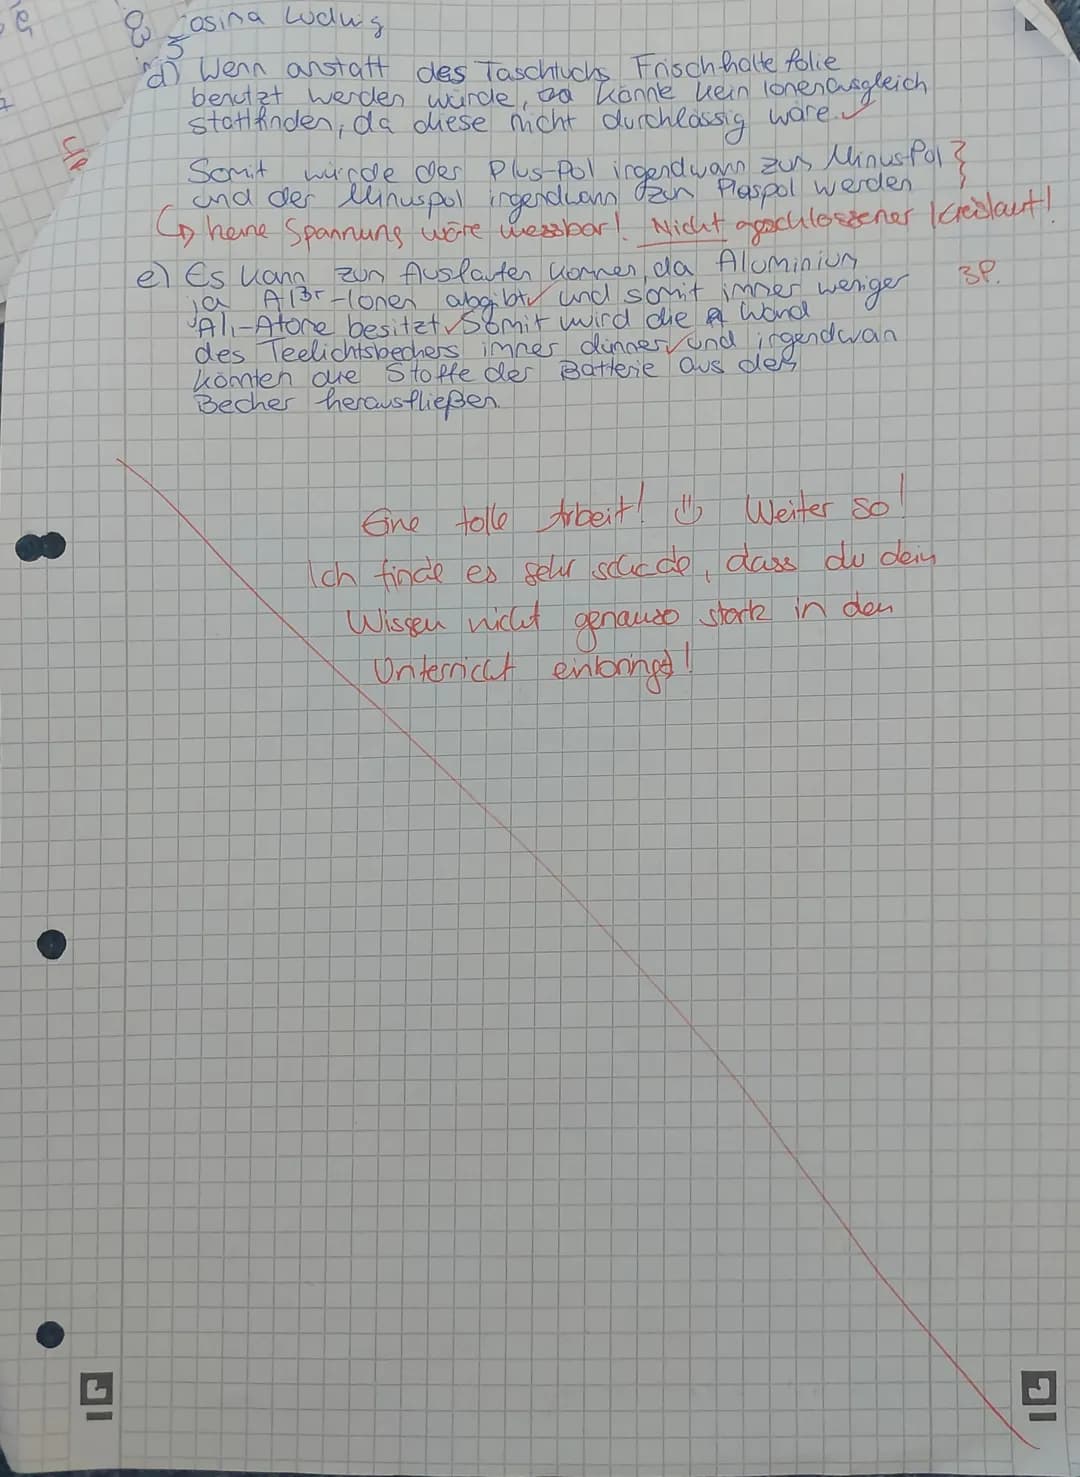 Josina Ludwig
d) Wenn anstatt des Taschtuchs Frischhalte folie
benutzt werden würde, könnte kein Ionenausgleich
stattfinden, da diese nicht durchlässig wäre. ✓
Somit würde der Plus-Pol irgendwann zum Minus-Pol
und der Minuspol irgendwann zum Pluspol werden
↳ keine Spannung wäre messbar! Nicht geschlossener Kreislauf!
e) Es kann zum Auslaufen kommen, da Aluminium 3P.
ja Al3+-Ionen abgibt ✓ und somit immer weniger
Al-Atome besitzt. ✓ Somit wird die Wand
des Teelichtsbechers immer dünner ✓ und irgendwan
könnten die Stoffe der Batterie aus dem
Becher herausfließen.
Eine tolle Arbeit! Weiter so!
Ich finde es sehr schade, dass du dein
Wissen nicht genauso stark in den
Unterricht einbringst!